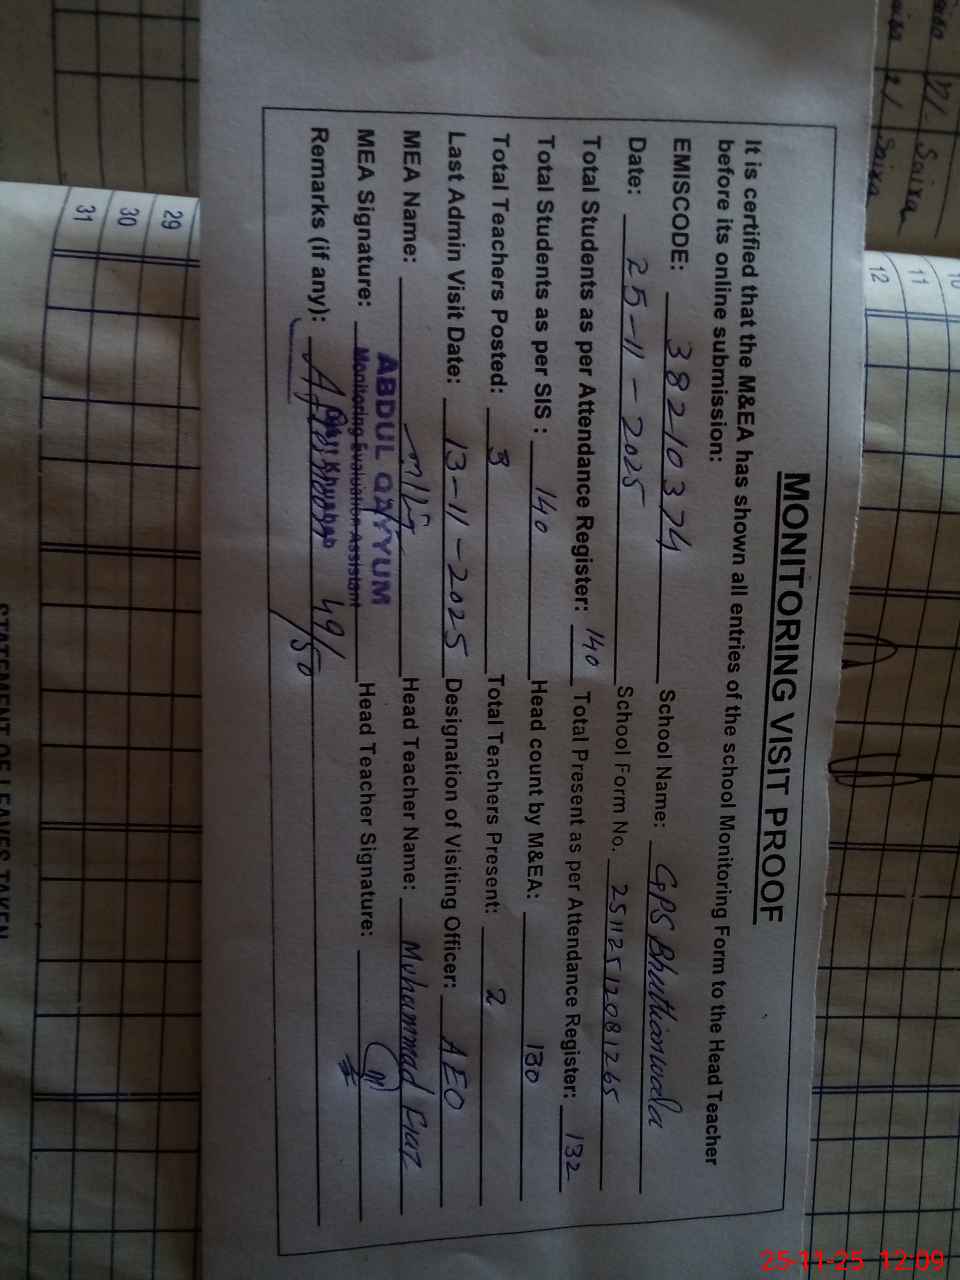 MONITORING VISIT PROOF
It is certified that the M&EA has shown all entries of the school Monitoring Form to the Head Teacher
before its online submission:
EMISCODE: 38210374 School Name: GPS Bhuttianwala
Date: 25-11-2025 School Form No. 25112512081265
Total Students as per Attendance Register: 140 Total Present as per Attendance Register: 132
Total Students as per SIS: 140 Head count by M&EA: 130
Total Teachers Posted: 3 Total Teachers Present: 2
Last Admin Visit Date: 13-11-2025 Designation of Visiting Officer: AEO
MEA Name: Head Teacher Name: Muhammad Fiaz
ABDUL QAYYUM
MEA Signature: Head Teacher Signature:
Monitoring Evaluation Assistant
Remarks (if any): 49/50
10
11
12
29
30
31
Saixa
Saixa
STATEMENT OF LEAVES TAKEN
25-11-25 12:09